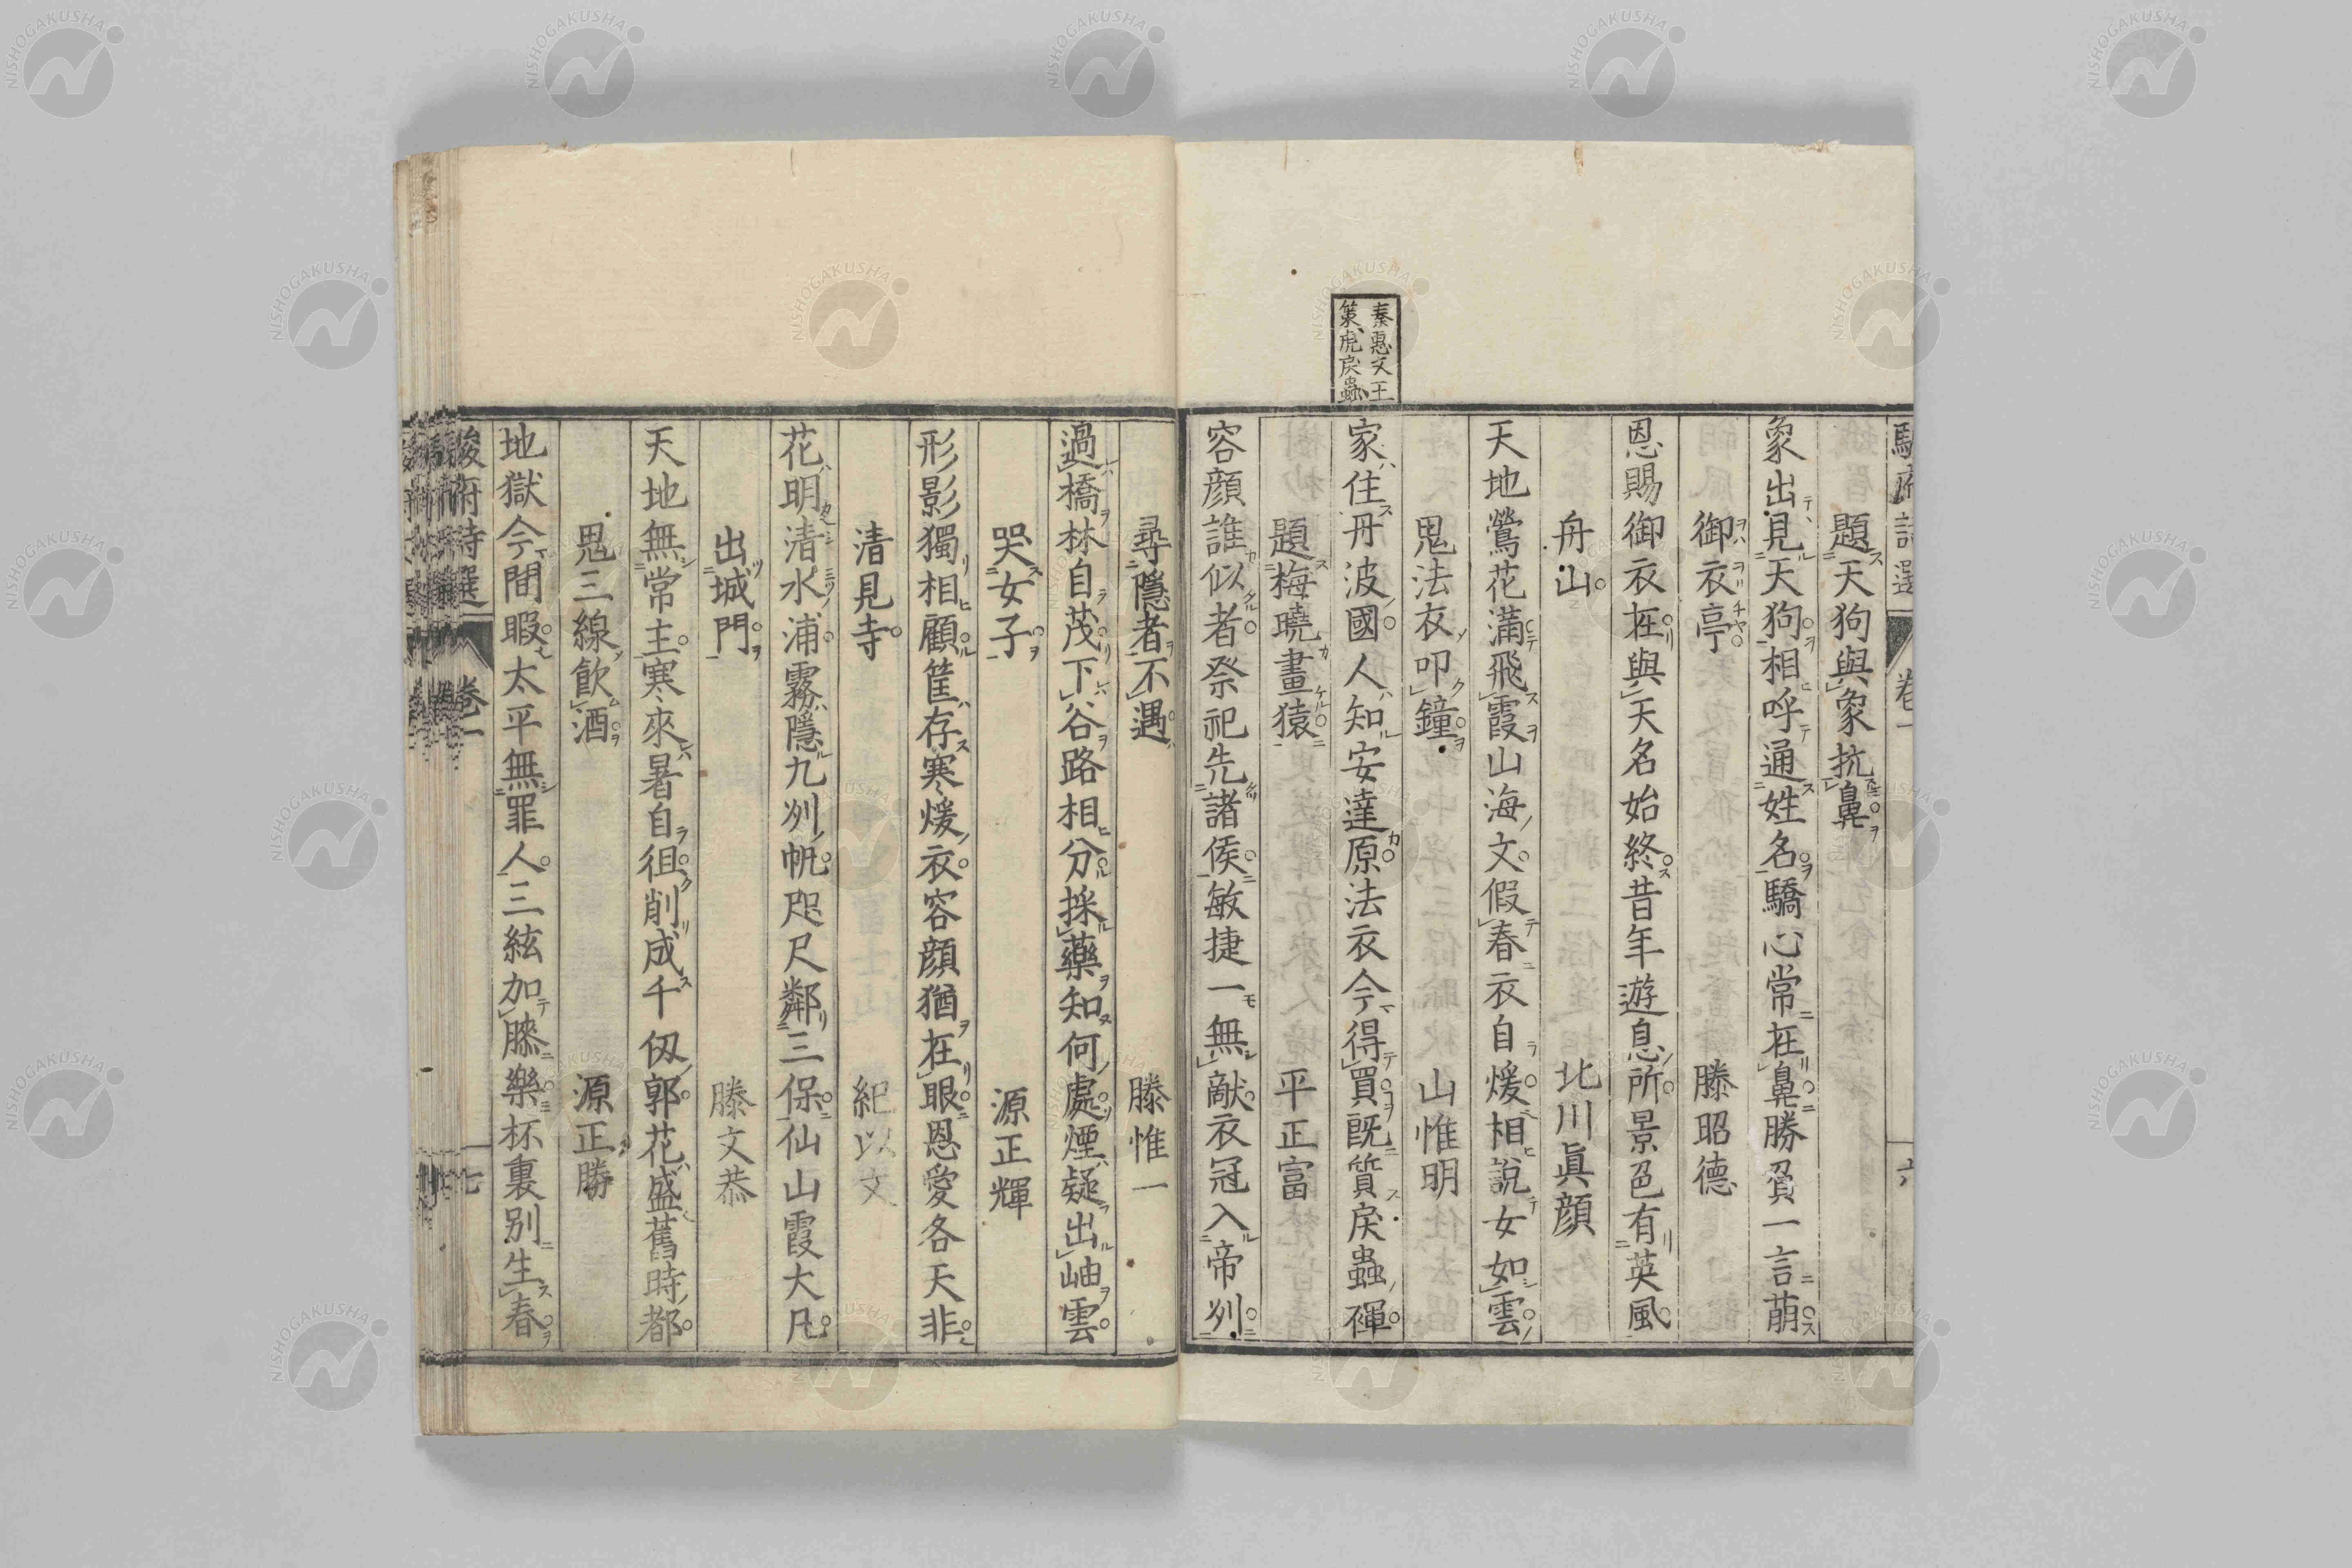 駿府詩選 卷一 六
題天狗與象抗鼻
象出見天狗相呼通姓名驕心常在鼻勝負一言萠
御衣亭 滕昭德
恩賜御衣在與天名始終昔年遊息所景色有英風
舟山 北川眞顔
天地鶯花滿飛霞山海文假春衣自煖相說女如雲
鬼法衣叩鐘 山惟明
秦惠文王
策虎戾蟲
家住丹波國人知安達原法衣今得買既質戾蟲褌
題梅曉畫猿 平正富
容顔誰似者祭祀先諸侯敏捷一無敵衣冠入帝列
尋隱者不遇 滕惟一
過橋林自茂下谷路相分採藥知何處煙疑出岫雲
哭女子 源正輝
形影獨相顧筐存寒煖衣容顔猶在眼恩愛各天非
清見寺 紀以文
花明清水浦霧隱九州帆咫尺鄰三保仙山霞大凡
出城門 滕文恭
天地無常主寒來暑自徂削成千仭郭花盛舊時都
鬼三線飮酒 源正勝
地獄今間暇太平無罪人三絃加膝樂杯裏別生春
駿府詩選 卷一 七
NISHOGAKUSHA